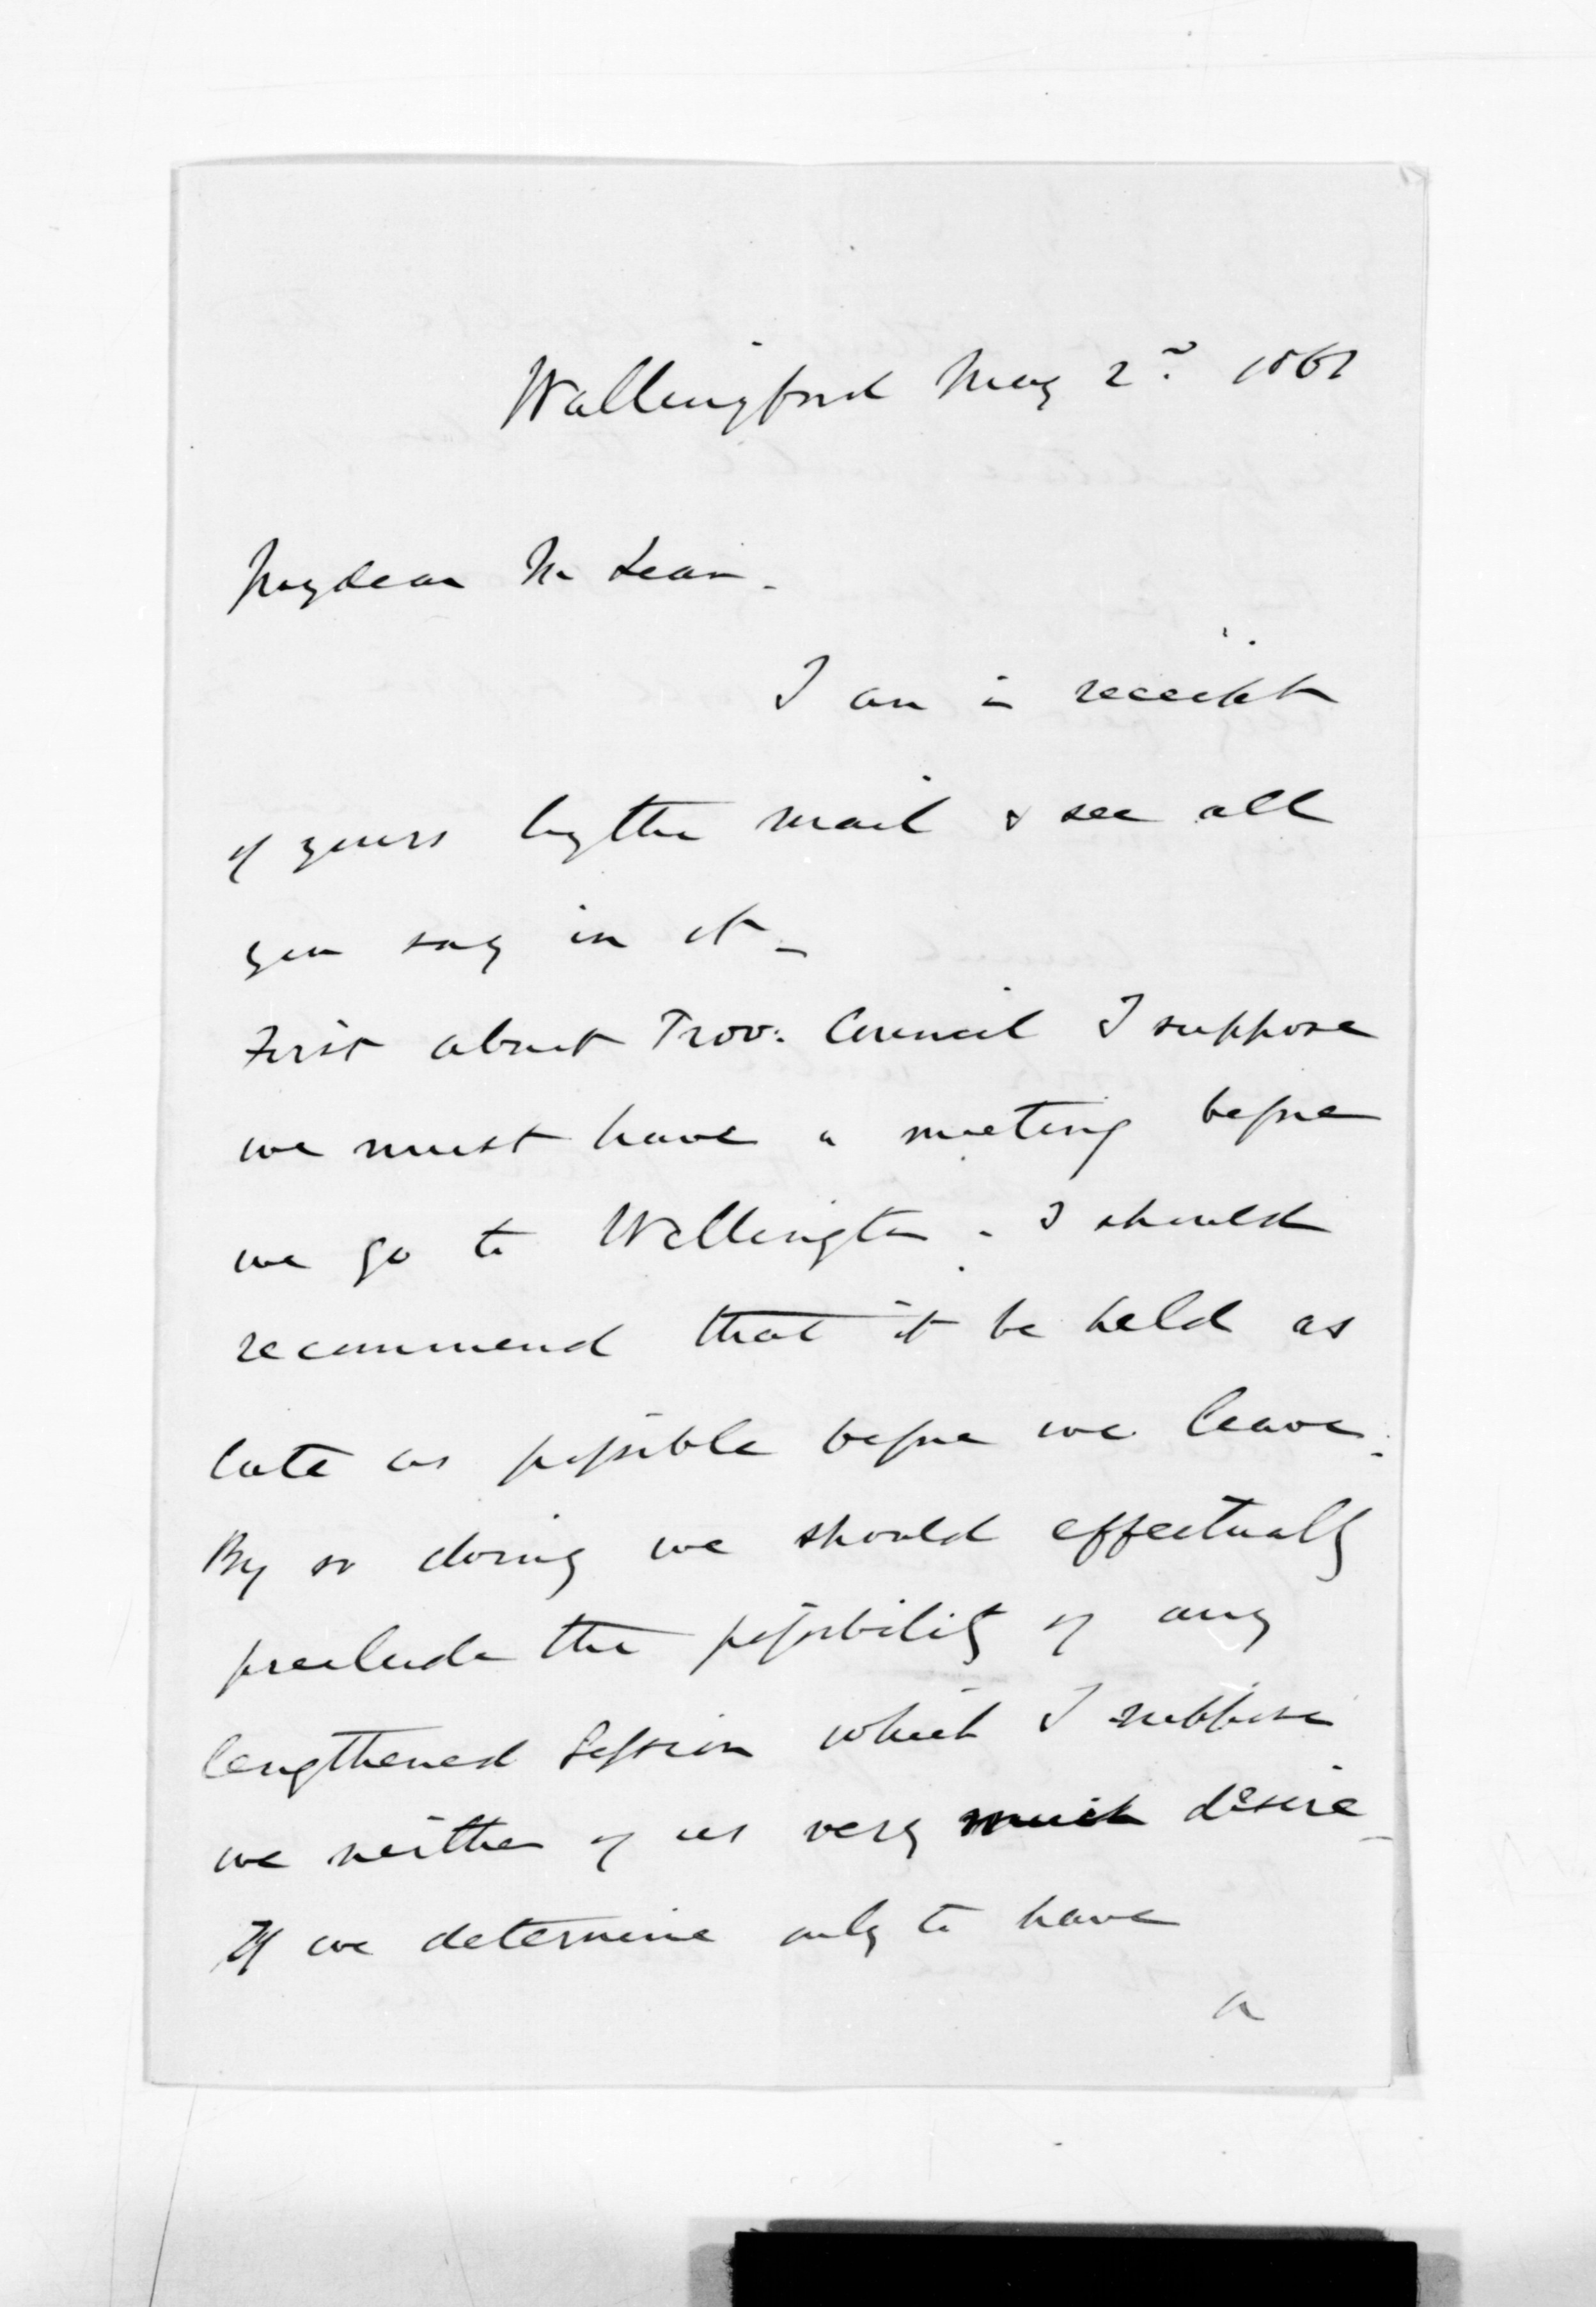 Wallingford May 2nd 1867
My dear McLean.
I am in receipt
of yours by the mail & see all
you say in it -
First about Prov: Council I suppose
we must have a meeting before
we go to Wellington. I should
recommend that it be held as
late as possible before we leave.
By so doing we should effectually
preclude the possibility of any
lengthened Session which I suppose
we neither of us very much desire -
If we determine only to have
a